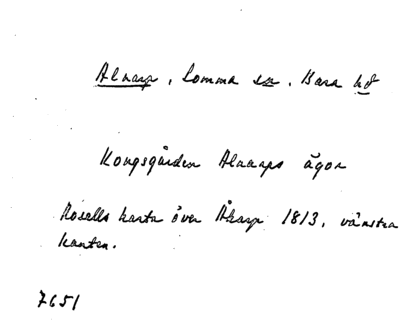 Alnarp, Lomma sn, Bara hd
Kongsgården Alnarps ägor
Rosells karta över Åkarp 1813, vänstra
kanten.
7651